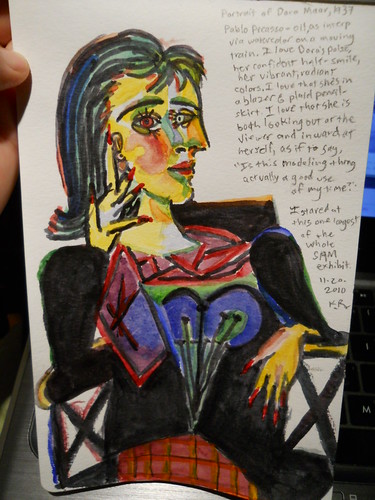 Portrait of Dora Maar, 1937
Pablo Picasso - oil, as interp
via watercolor on a moving
train. I love Dora's poise,
her confident half-smile,
her vibrant, radiant
colors. I love that she's in
a blazer & plaid pencil-
skirt. I love that she is
both looking out at the
viewer and inward at
herself, as if to say,
"Is this modeling thing
actually a good use
of my time?"
I stared at
this one longest
of the
whole
SAM
exhibit.
11-20.
2010
KR